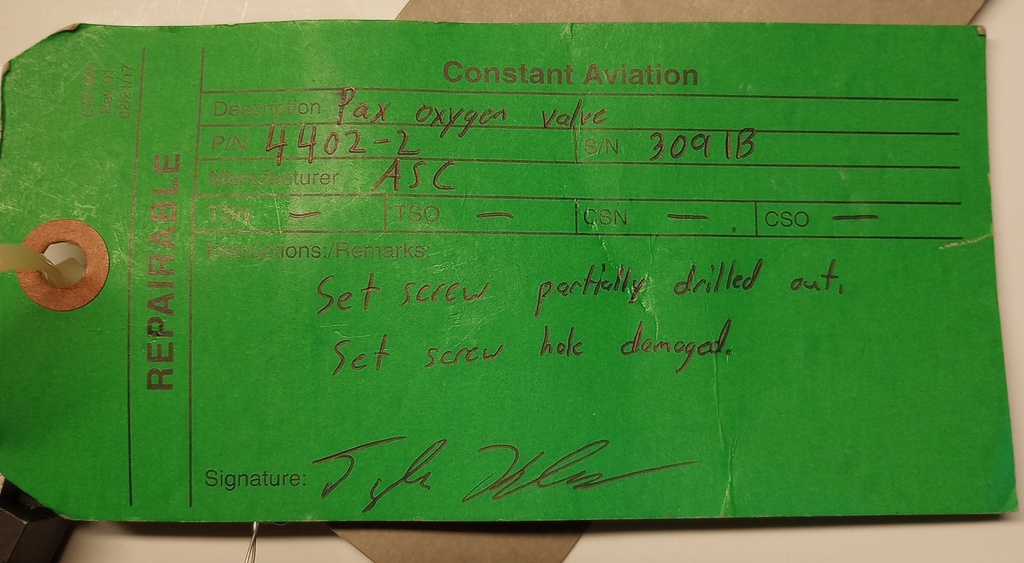 Constant Aviation
Description Pax oxygen valve
P/N 4402-2 S/N 3091B
Manufacturer ASC
TSN — TSO — CSN — CSO —
Instructions:/Remarks:
Set screw partially drilled out.
Set screw hole damaged.
Signature: Tyler
REPAIRABLE
Rev. 01
02/21/17